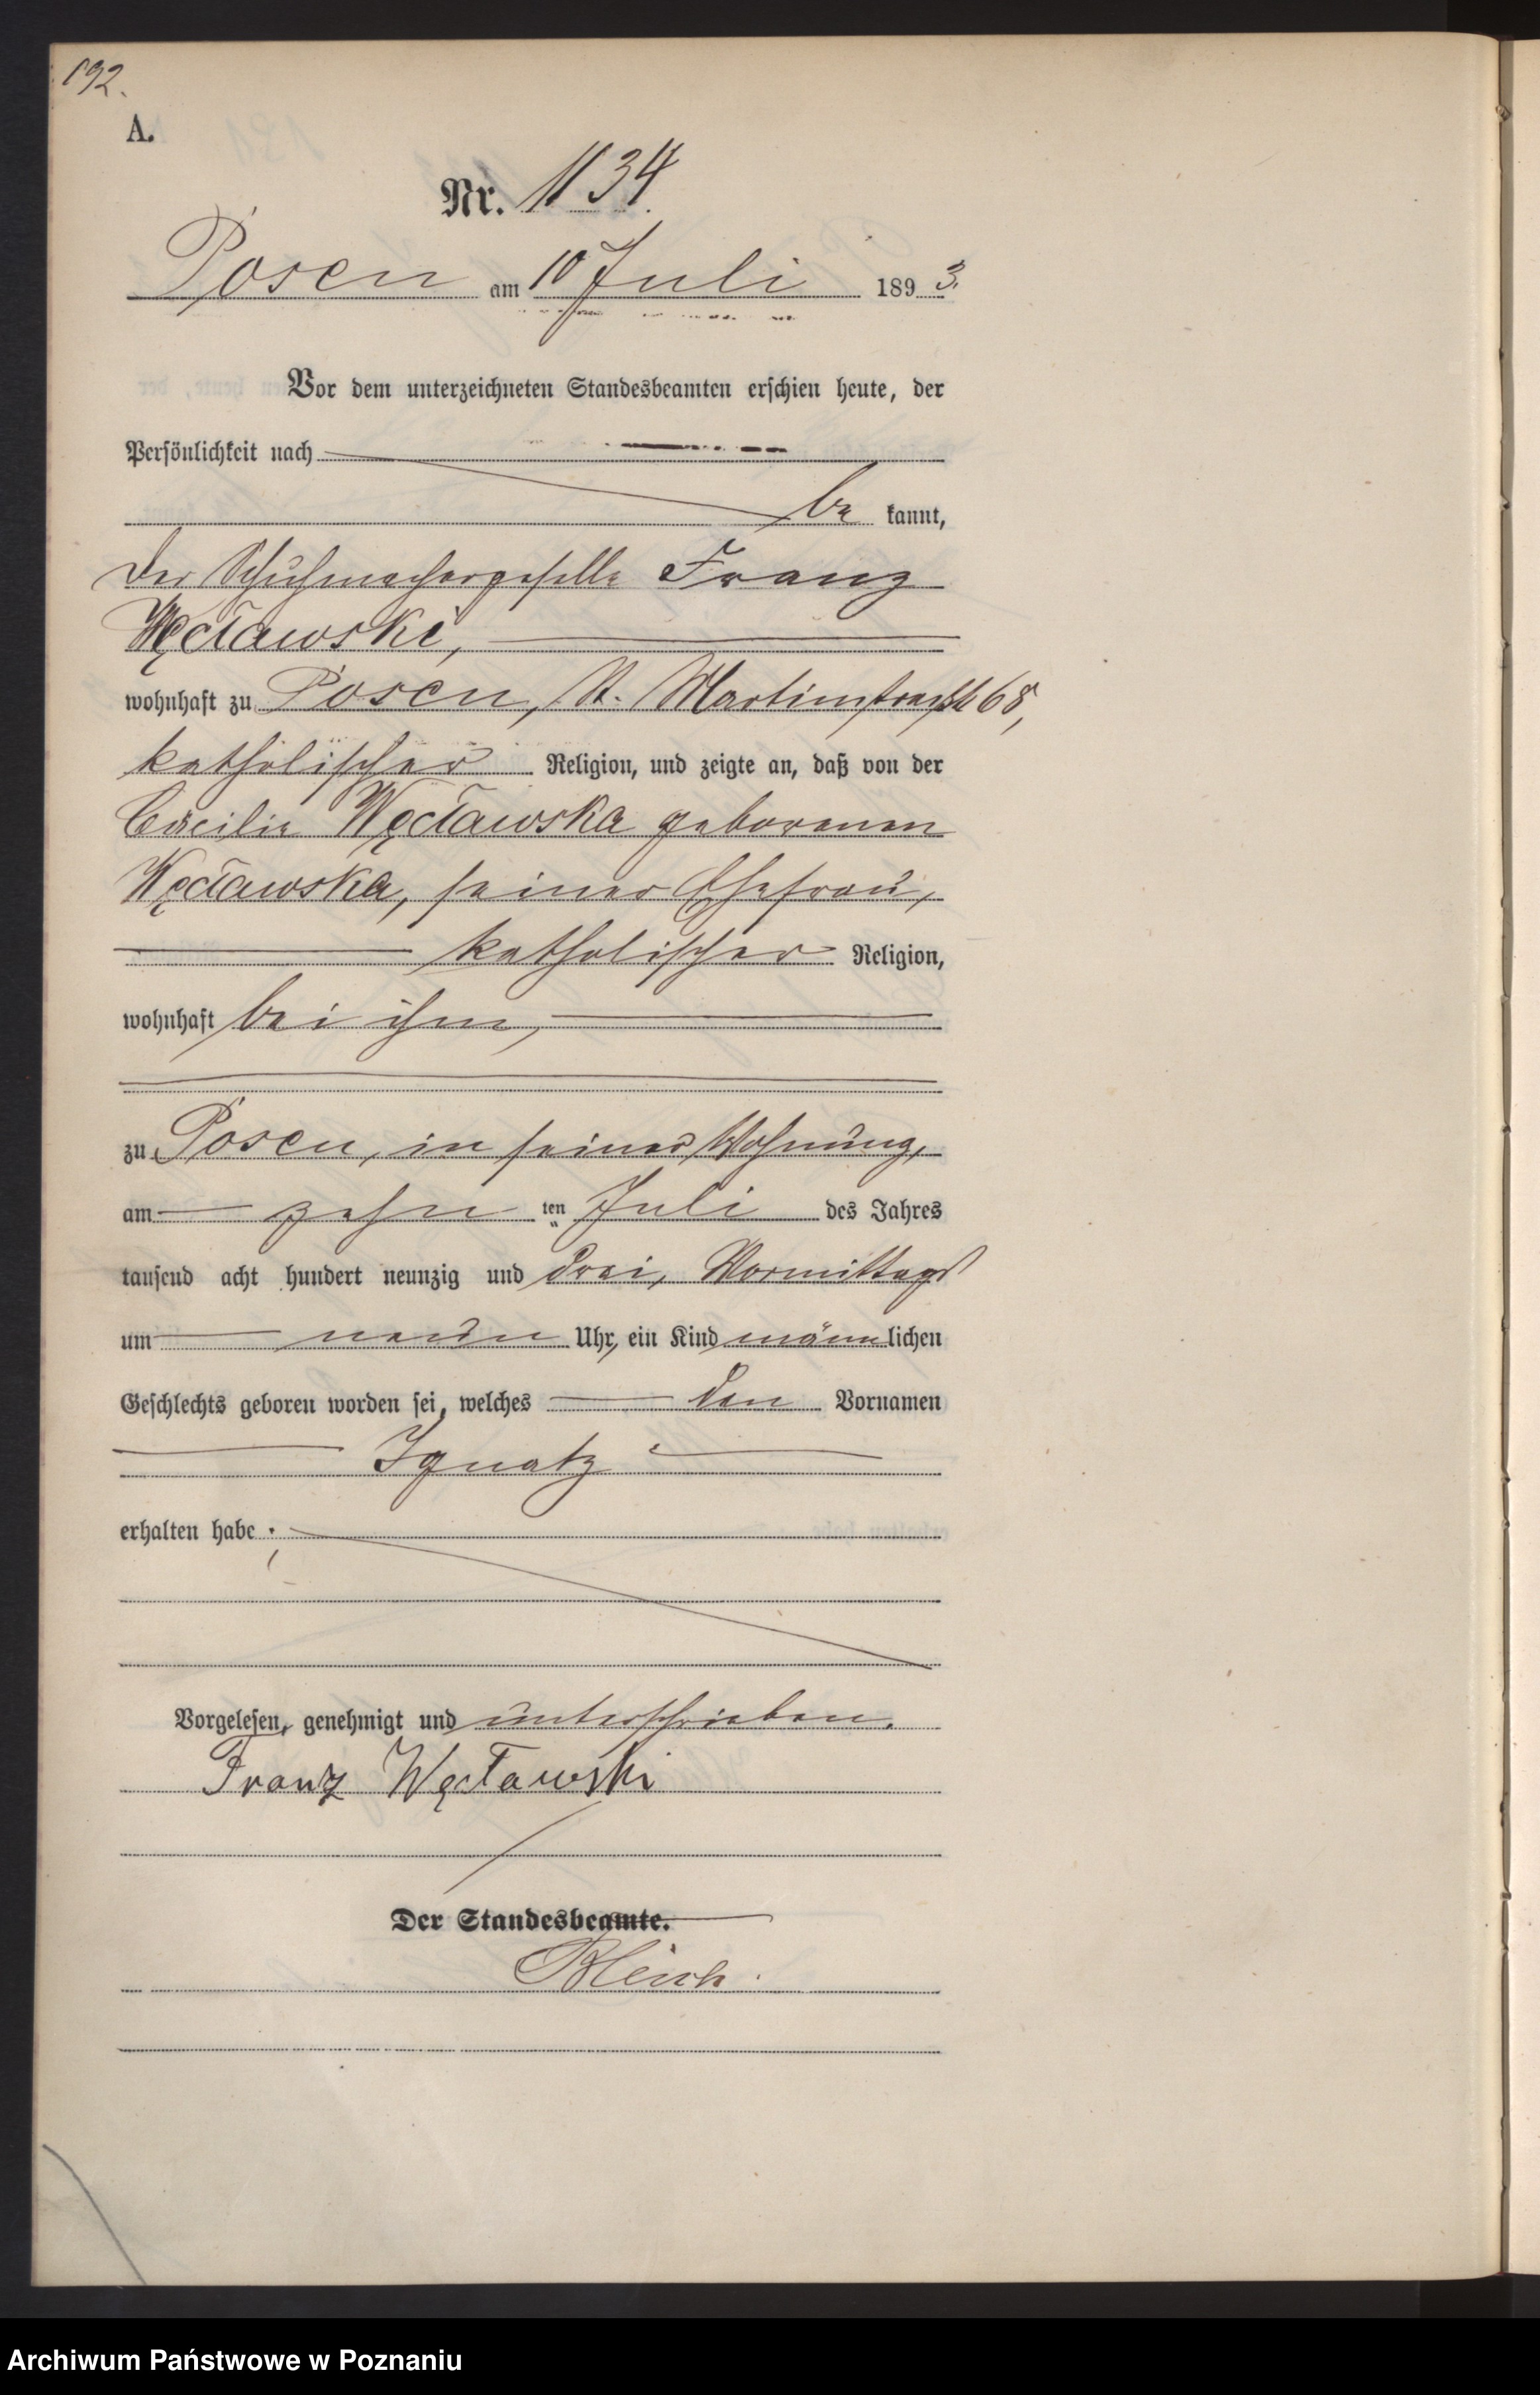 192.
A.
Nr. 1134.
Posen am 10 Juli 1893.
Vor dem unterzeichneten Standesbeamten erschien heute, der
Persönlichkeit nach
be kannt,
der Schuhmachergeselle Franz
Węcławski,
wohnhaft zu Posen, St. Martinstraße 68,
katholischer Religion, und zeigte an, daß von der
Cäcilie Węcławska geborenen
Węcławska, seiner Ehefrau,
katholischer Religion,
wohnhaft bei ihm,
zu Posen, in seiner Wohnung,
am zehn ten Juli des Jahres
tausend acht hundert neunzig und drei, Vormittags
um neun Uhr, ein Kind männlichen
Geschlechts geboren worden sei, welches den Vornamen
Ignatz
erhalten habe.
Vorgelesen, genehmigt und unterschrieben.
Franz Węcławski
Der Standesbeamte.
Archiwum Państwowe w Poznaniu